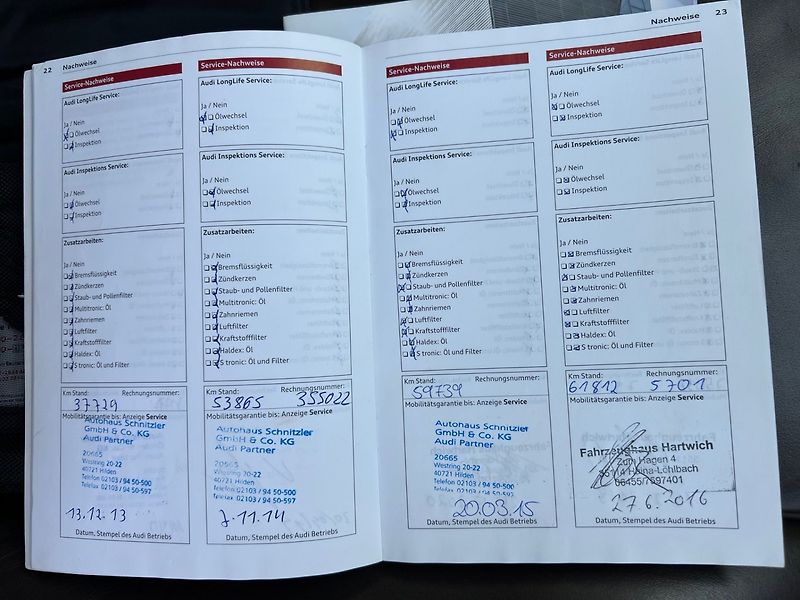 22 Nachweise
Service-Nachweise
Audi LongLife Service:
Ja / Nein
Ölwechsel
Inspektion
Audi Inspektions Service:
Ja / Nein
Ölwechsel
Inspektion
Zusatzarbeiten:
Ja / Nein
Bremsflüssigkeit
Zündkerzen
Staub- und Pollenfilter
Multitronic: Öl
Zahnriemen
Luftfilter
Kraftstofffilter
Haldex: Öl
S tronic: Öl und Filter
Km Stand: Rechnungsnummer:
37729
Mobilitätsgarantie bis: Anzeige Service
Autohaus Schnitzler
GmbH & Co. KG
Audi Partner
20665
Westring 20-22
40721 Hilden
Telefon 02103 / 94 50-500
Telefax 02103 / 94 50-597
13.12.13
Datum, Stempel des Audi Betriebs
Service-Nachweise
Audi LongLife Service:
Ja / Nein
Ölwechsel
Inspektion
Audi Inspektions Service:
Ja / Nein
Ölwechsel
Inspektion
Zusatzarbeiten:
Ja / Nein
Bremsflüssigkeit
Zündkerzen
Staub- und Pollenfilter
Multitronic: Öl
Zahnriemen
Luftfilter
Kraftstofffilter
Haldex: Öl
S tronic: Öl und Filter
Km Stand: Rechnungsnummer:
53865 355022
Mobilitätsgarantie bis: Anzeige Service
Autohaus Schnitzler
GmbH & Co. KG
Audi Partner
20665
Westring 20-22
40721 Hilden
Telefon 02103 / 94 50-500
Telefax 02103 / 94 50-597
7.11.14
Datum, Stempel des Audi Betriebs
Nachweise 23
Service-Nachweise
Audi LongLife Service:
Ja / Nein
Ölwechsel
Inspektion
Audi Inspektions Service:
Ja / Nein
Ölwechsel
Inspektion
Zusatzarbeiten:
Ja / Nein
Bremsflüssigkeit
Zündkerzen
Staub- und Pollenfilter
Multitronic: Öl
Zahnriemen
Luftfilter
Kraftstofffilter
Haldex: Öl
S tronic: Öl und Filter
Km Stand: Rechnungsnummer:
59739
Mobilitätsgarantie bis: Anzeige Service
Autohaus Schnitzler
GmbH & Co. KG
Audi Partner
20665
Westring 20-22
40721 Hilden
Telefon 02103 / 94 50-500
Telefax 02103 / 94 50-597
20.03.15
Datum, Stempel des Audi Betriebs
Service-Nachweise
Audi LongLife Service:
Ja / Nein
Ölwechsel
Inspektion
Audi Inspektions Service:
Ja / Nein
Ölwechsel
Inspektion
Zusatzarbeiten:
Ja / Nein
Bremsflüssigkeit
Zündkerzen
Staub- und Pollenfilter
Multitronic: Öl
Zahnriemen
Luftfilter
Kraftstofffilter
Haldex: Öl
S tronic: Öl und Filter
Km Stand: Rechnungsnummer:
61812 5701
Mobilitätsgarantie bis: Anzeige Service
Fahrzeughaus Hartwich
Zum Hagen 4
Haina-Löhlbach
06455/7597401
27.6.2016
Datum, Stempel des Audi Betriebs